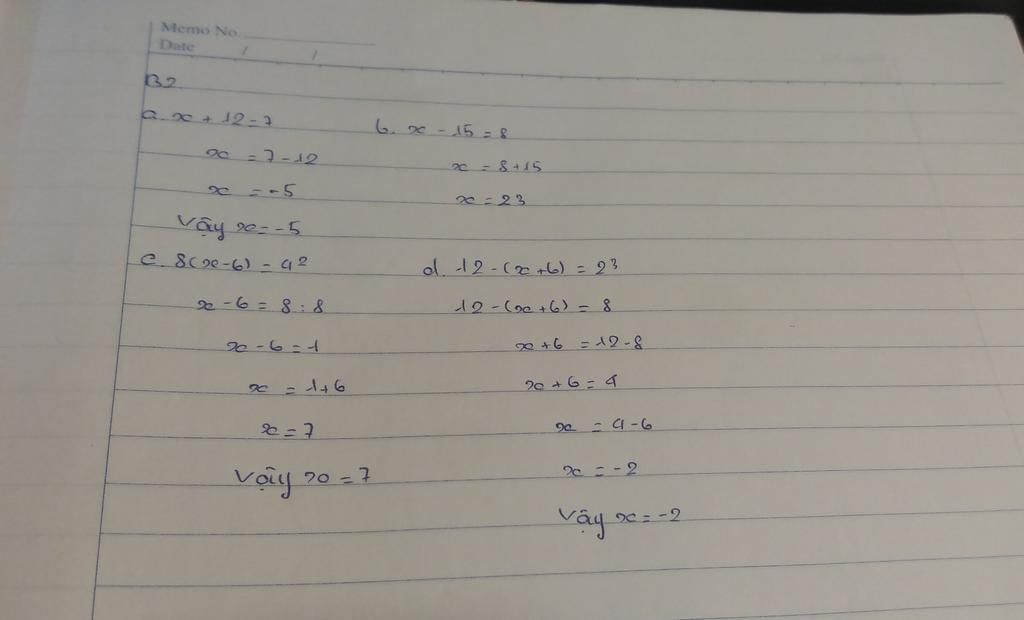 Memo No.
Date / /
B2
a. x + 12 = 7
x = 7 - 12
x = -5
Vậy x = -5
b. x - 15 = 8
x = 8 + 15
x = 23
c. 8(x - 6) = 4²
x - 6 = 8 : 8
x - 6 = 1
x = 1 + 6
x = 7
Vậy x = 7
d. 12 - (x + 6) = 2³
12 - (x + 6) = 8
x + 6 = 12 - 8
x + 6 = 4
x = 4 - 6
x = -2
Vậy x = -2